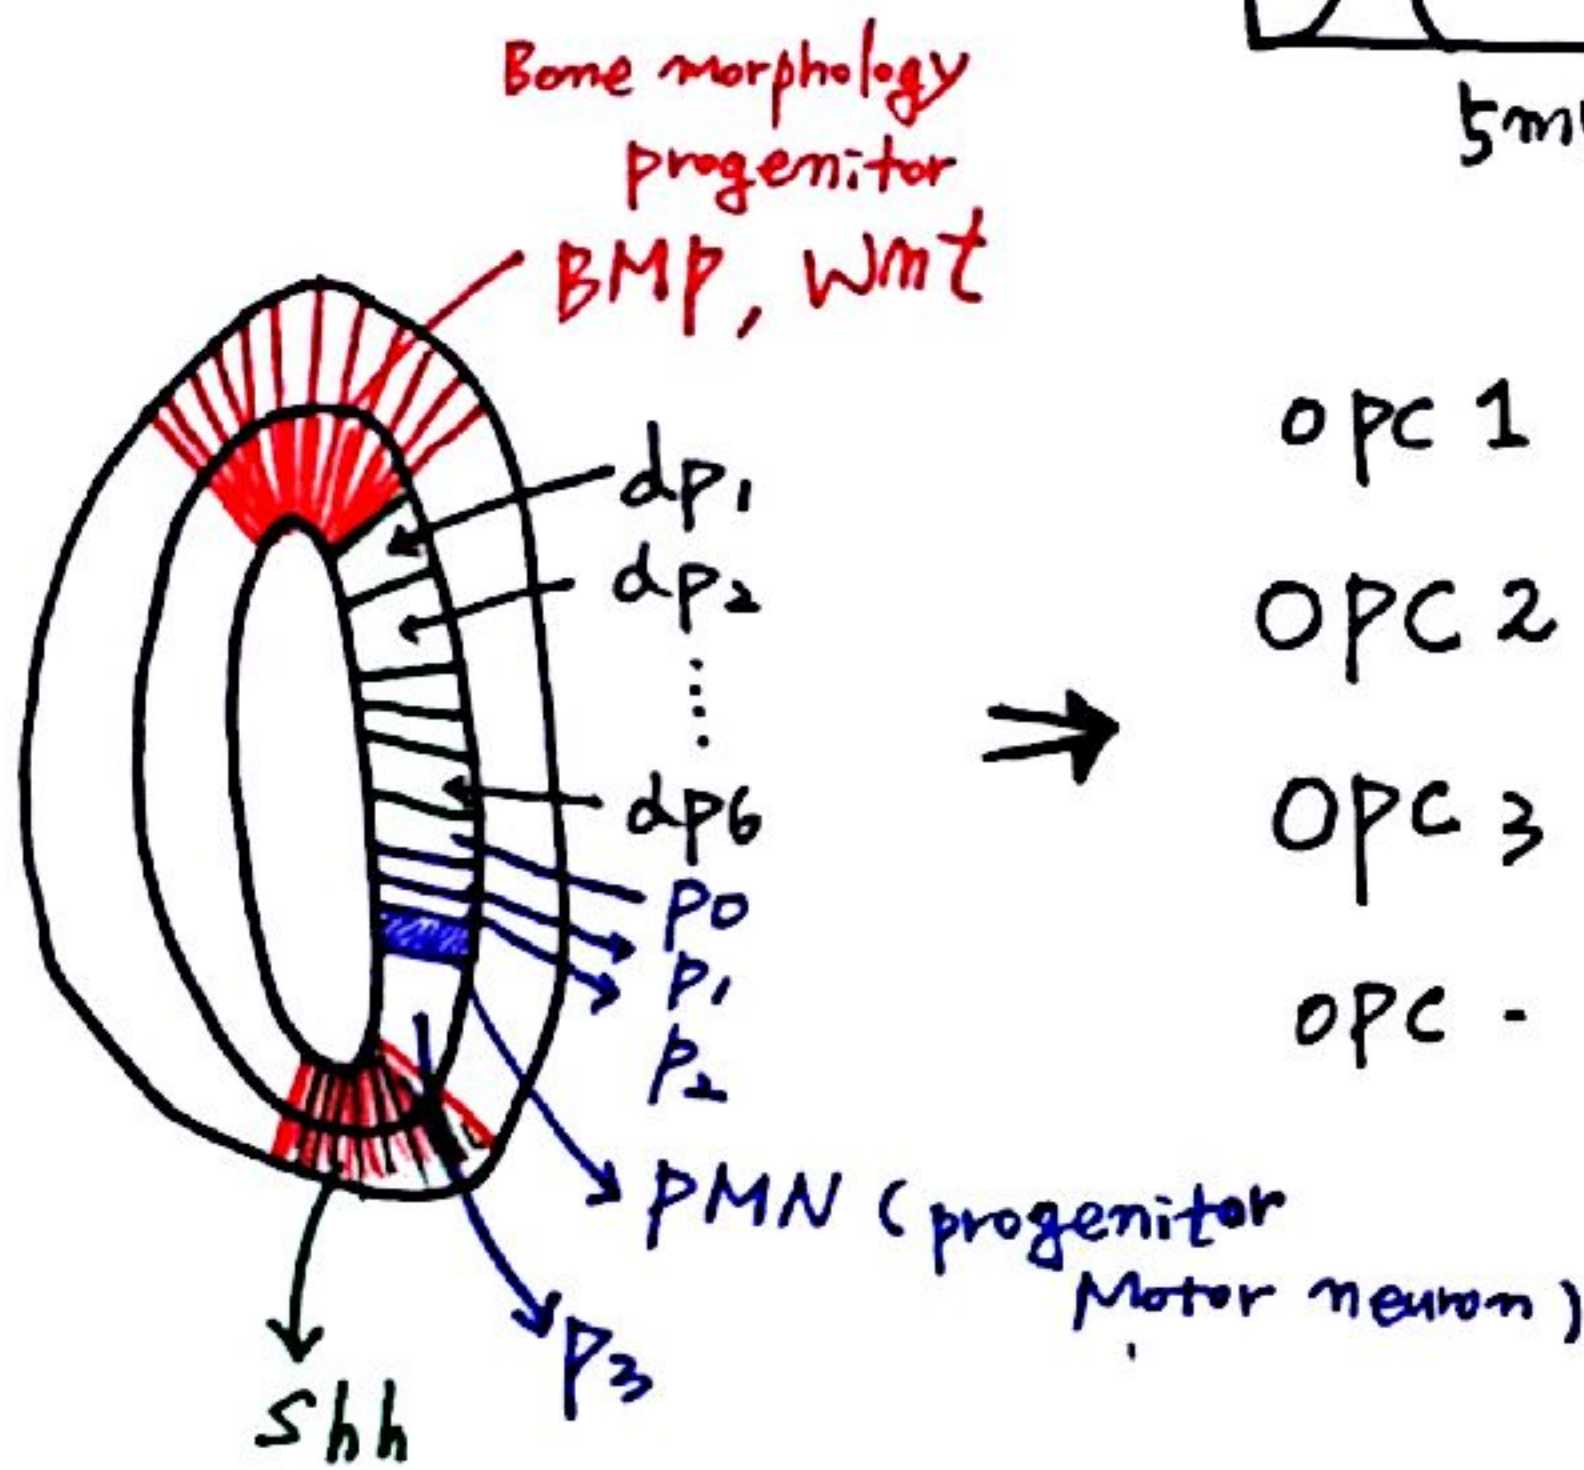 Bone morphology
progenitor
BMP, Wnt
dp1
dp2
dp6
p0
p1
p2
PMN (progenitor
Motor neuron)
p3
Shh
OPC 1
OPC 2
OPC 3
OPC -